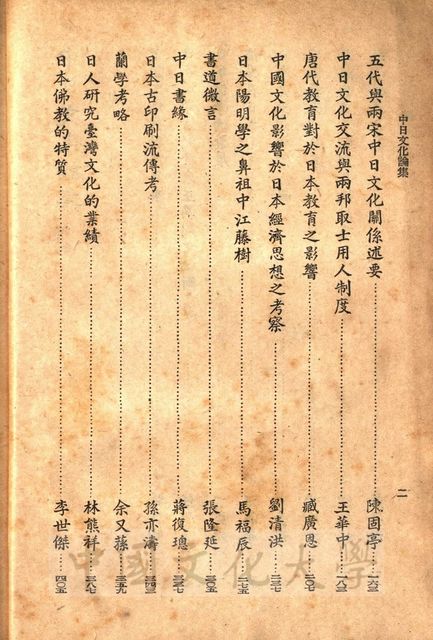 中日文化論集
二
五代與兩宋中日文化關係述要……陳固亭 一六三
中日文化交流與兩邦取士用人制度……王華中 一八三
唐代教育對於日本教育之影響……臧廣恩 二〇七
中國文化影響於日本經濟思想之考察……劉清洪 二三七
日本陽明學之鼻祖中江藤樹……馬福辰 二七五
書道微言……張隆延 三〇五
中日書緣……蔣復璁
日本古印刷流傳考……孫亦濤 三四三
蘭學考略……余又蓀 三五九
日人研究臺灣文化的業績……林熊祥 三八七
日本佛教的特質……李世傑 四〇五
中國文化大學